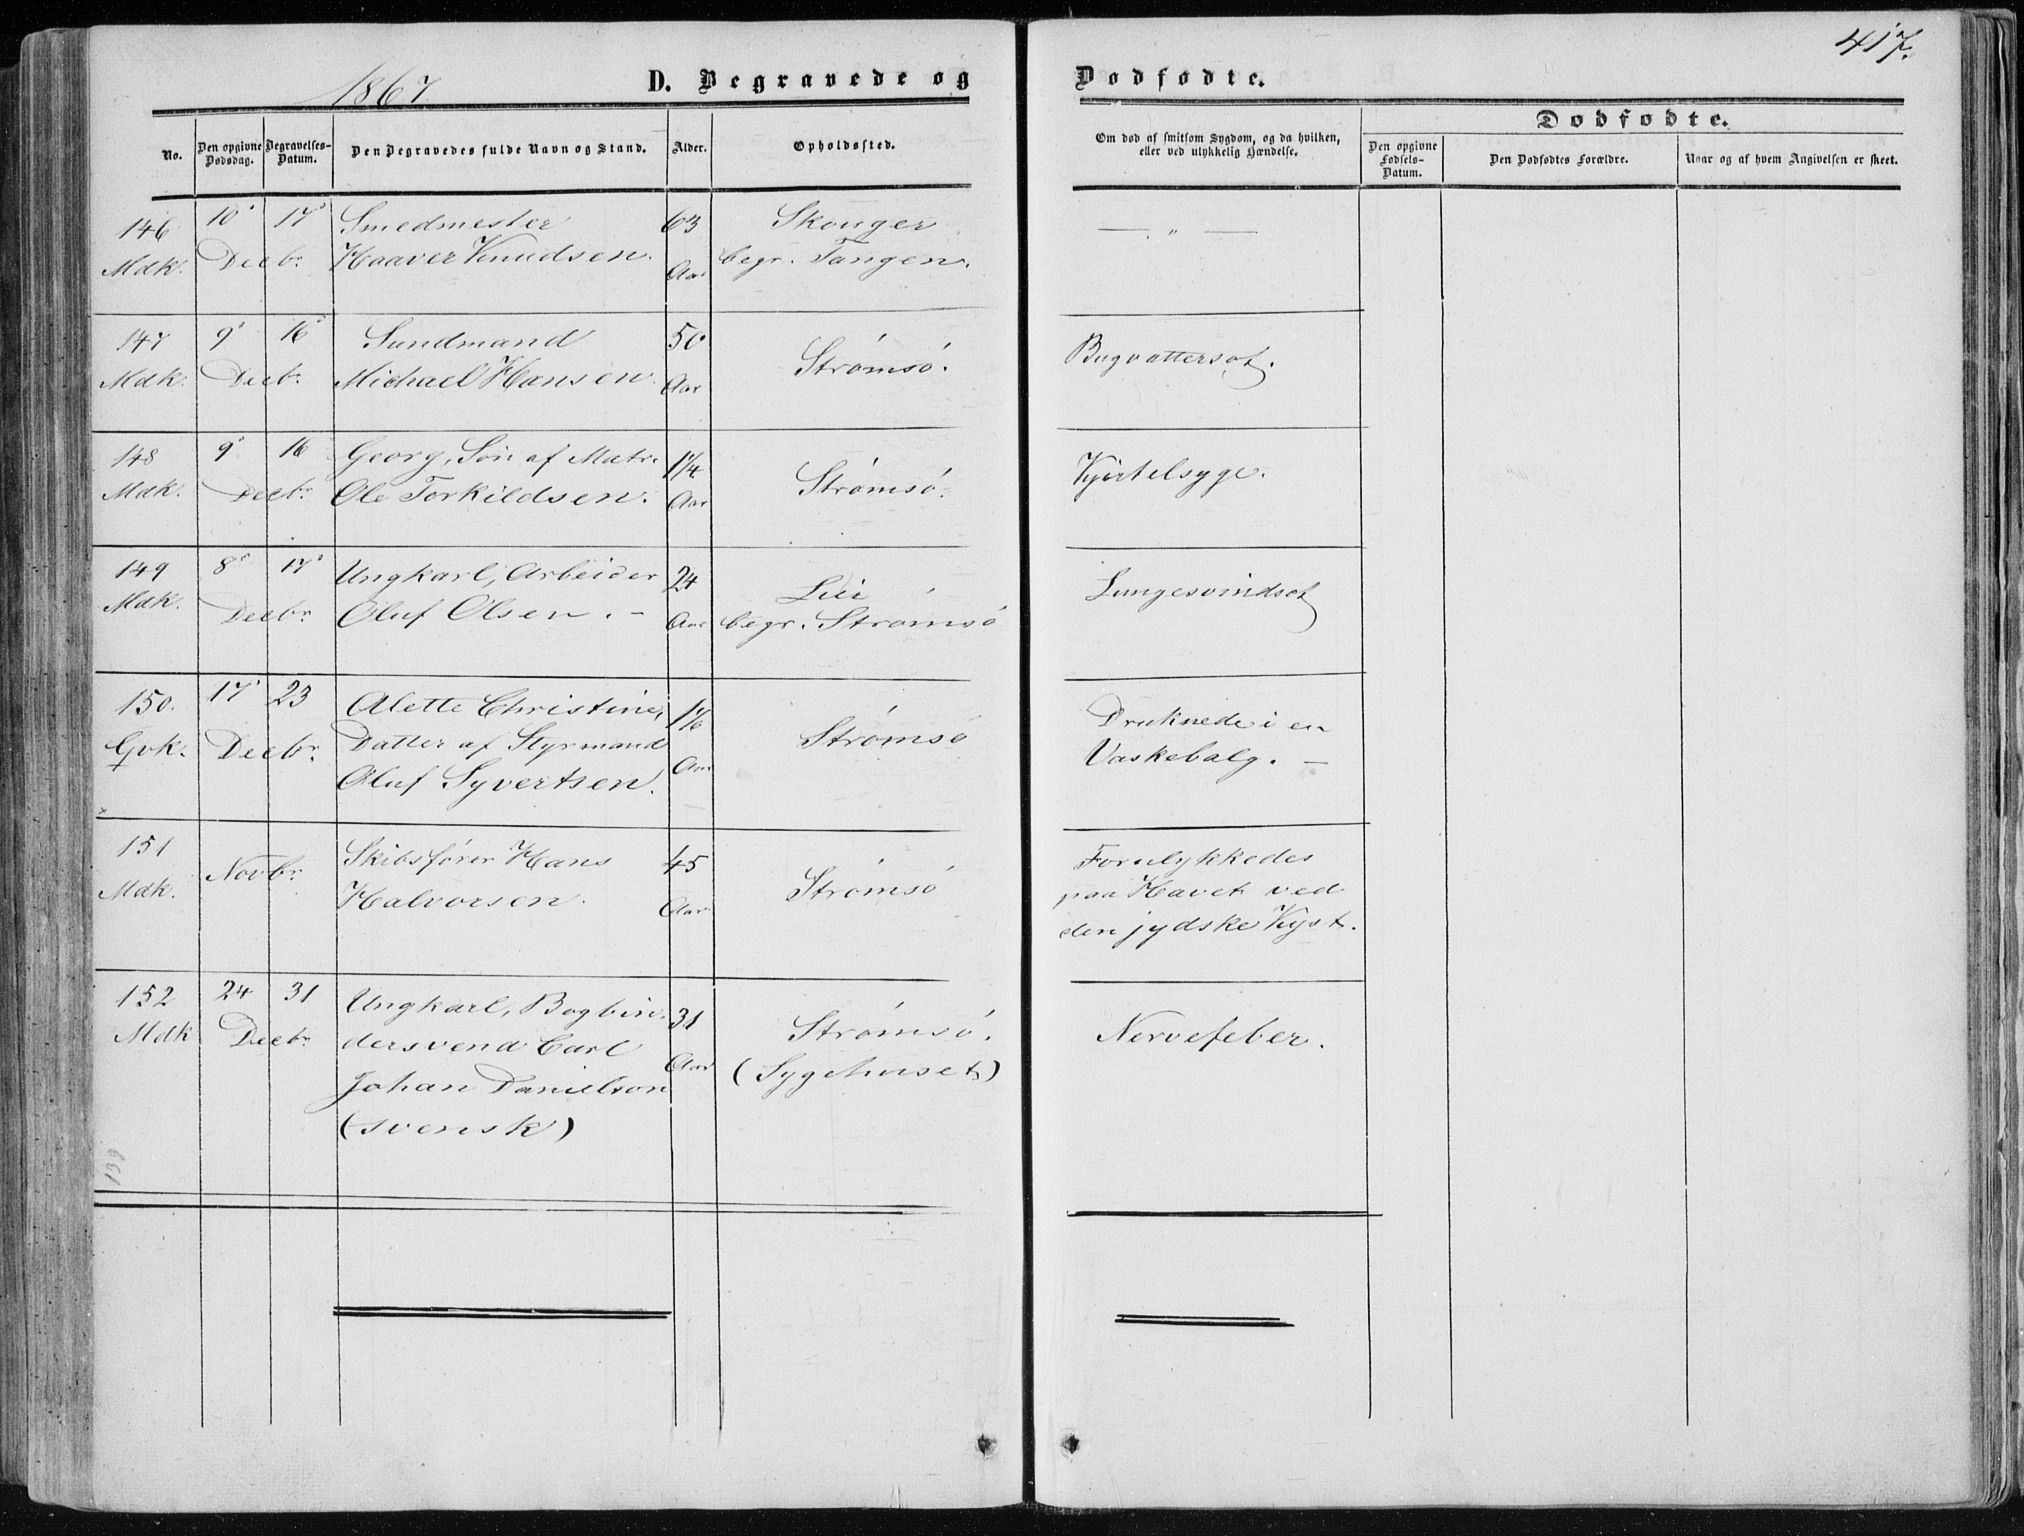 417.
1867.
D. Begravede og
Dødfødte.
No.
Den opgivne Dødsdag.
Begravelses-Datum.
Den Begravedes fulde Navn og Stand.
Alder.
Opholdssted.
Om død af smitsom Sygdom, og da hvilken,
eller ved ulykkelig Hændelse.
Dødfødte.
Den opgivne Fødsels-Datum.
Den Dødfødtes Forældre.
Naar og af hvem Angivelsen er skeet.
146 10 17 Smedmester 63 Skouger — " —
Mdk. Decbr. Haaver Knudsen. Aar begr. Tangen.
147 9 16 Sundmand 50 Strømsø. Bugvattersot.
Mdk. Decbr. Michael Hansen. Aar
148 9 16 Georg, Søn af Matr. 1¼ Strømsø. Kjertelsyge.
Mdk. Decbr. Ole Torkildsen. Aar
149 8 17 Ungkarl, Arbeider 24 Lier Lungesvindsot
Mdk. Decbr. Oluf Olsen. — Aar begr. Strømsø
150. 17 23 Alette Christine, 1⅙ Strømsø Druknede i en
Qvk. Decbr. Datter af Styrmand Aar Vaskebalg. —
Oluf Syvertsen.
151 Novbr. Skibsfører Hans 45 Strømsø Forulykkedes
Mdk. Halvorsen. Aar paa Havet ved
den jydske Kyst.
152 24 31 Ungkarl, Bogbin- 31 Strømsø. Nervefeber.
Mdk Decbr. dersvend Carl Aar (Sygehuset)
Johan Danielson
(svensk)
139